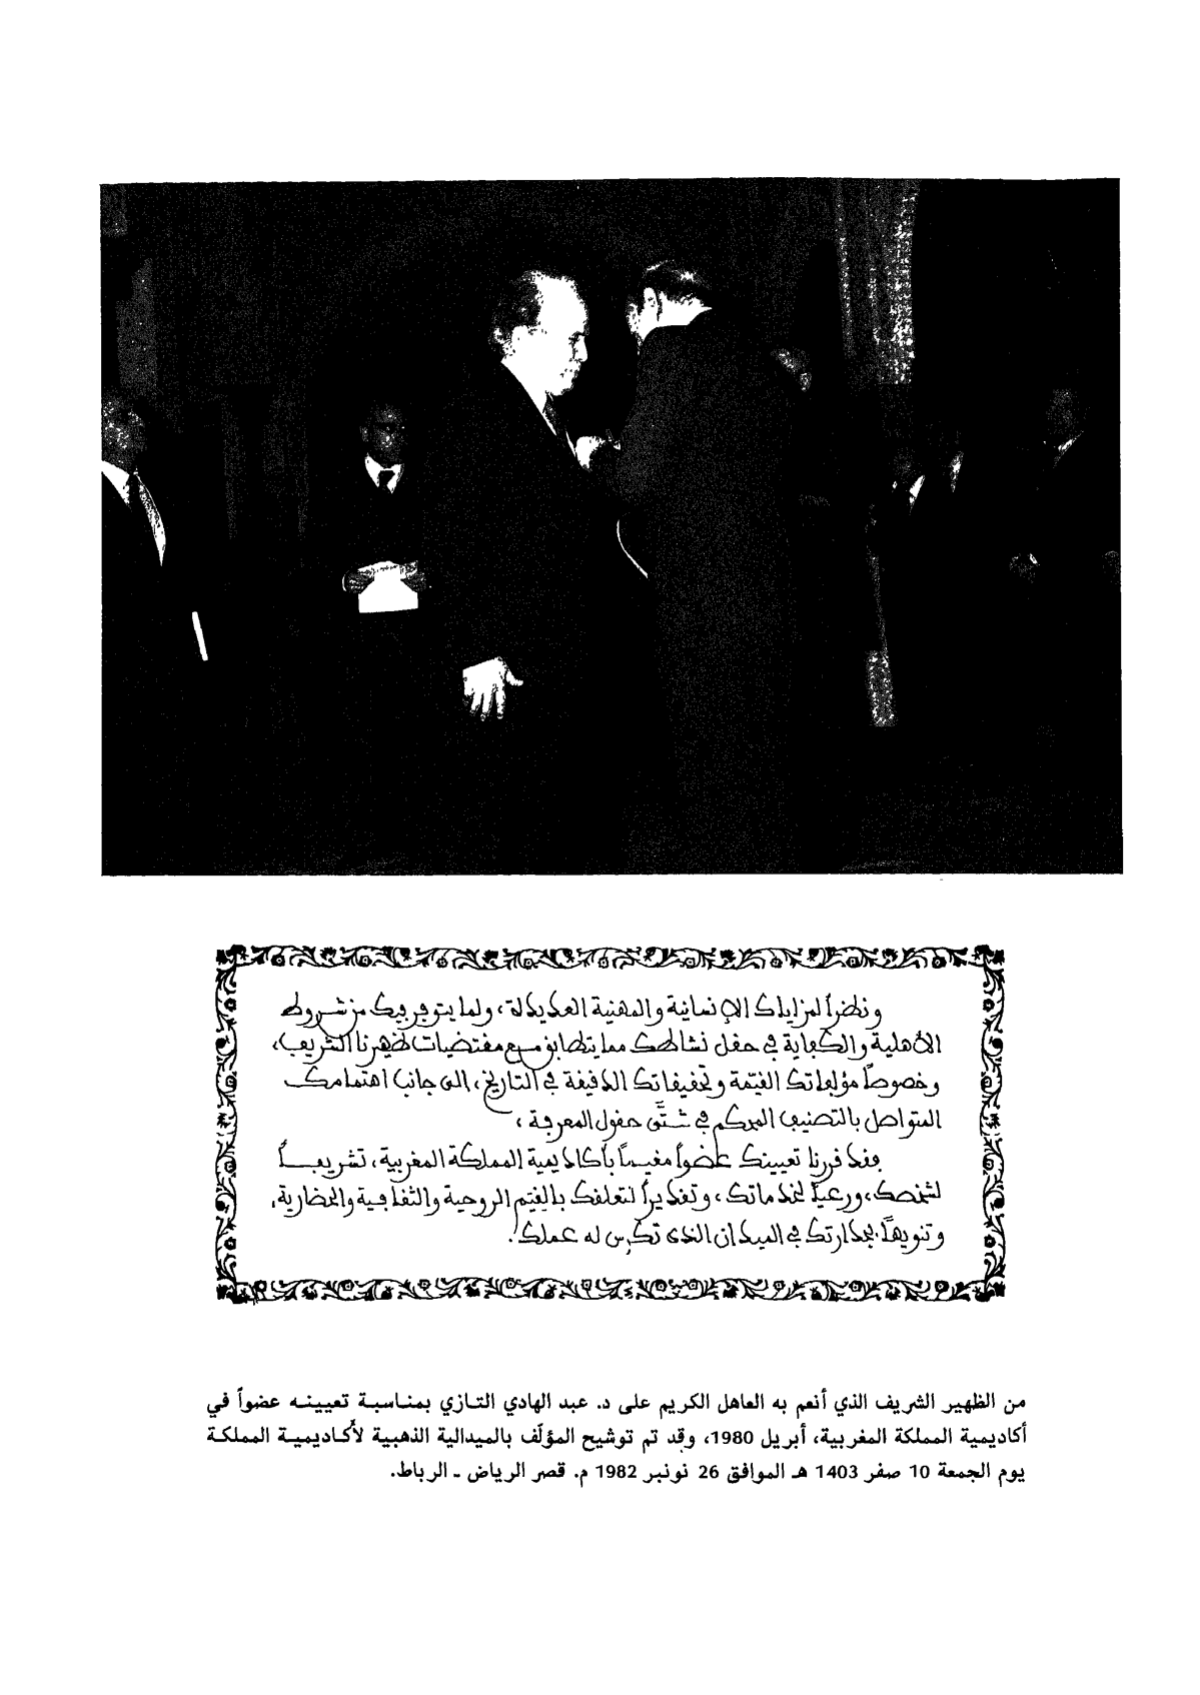 ونظراً لمزاياك الإنسانية والمهنية العديدة، ولما يتوفر فيك من شروط
الأهلية والكفاية في حقل نشاطك مما يتطابق مع مقتضيات ظهيرنا الشريف،
وخصوصاً مؤلفاتك القيّمة وتحقيقاتك الدقيقة في التاريخ، إلى جانب اهتمامك
المتواصل بالتصنيف المحكم في شتَّى حقول المعرفة،
فقد قررنا تعيينك عضواً مقيماً بأكاديمية المملكة المغربية، تشريفاً
لشخصك، ورعياً لخدماتك، وتقديراً لتعلقك بالقيم الروحية والثقافية والحضارية،
وتنويهاً بجدارتك في الميدان الذي تكرس له عملك.
من الظهير الشريف الذي أنعم به العاهل الكريم على د. عبد الهادي التازي بمناسبة تعيينه عضواً في
أكاديمية المملكة المغربية، أبريل 1980، وقد تم توشيح المؤلّف بالميدالية الذهبية لأكاديمية المملكة
يوم الجمعة 10 صفر 1403 هـ الموافق 26 نونبر 1982 م. قصر الرياض ـ الرباط.